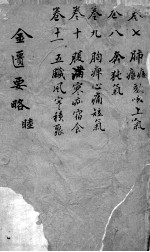 卷七 肺痿肺癰咳嗽上氣
仝八 奔㹠氣
卷九 胸痺心痛短氣
卷十 腹滿寒疝宿食
卷十一 五臟風寒積聚
金匱要略